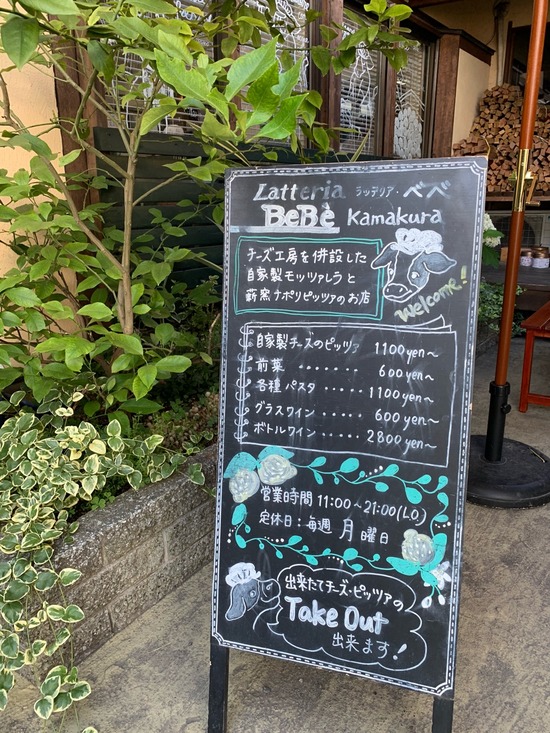 Latteria ラッテリア・ベベ
BeBè Kamakura
チーズ工房を併設した
自家製モッツァレラと
薪窯ナポリピッツァのお店
Welcome!
自家製チーズのピッツァ 1100yen〜
前菜 ・・・・・・・ 600yen〜
各種パスタ ・・・・・ 1100yen〜
グラスワイン ・・・・・ 600yen〜
ボトルワイン ・・・・・ 2800yen〜
営業時間 11:00〜21:00(L.O)
定休日:毎週 月 曜日
出来たてチーズ・ピッツァの
Take Out
出来ます!